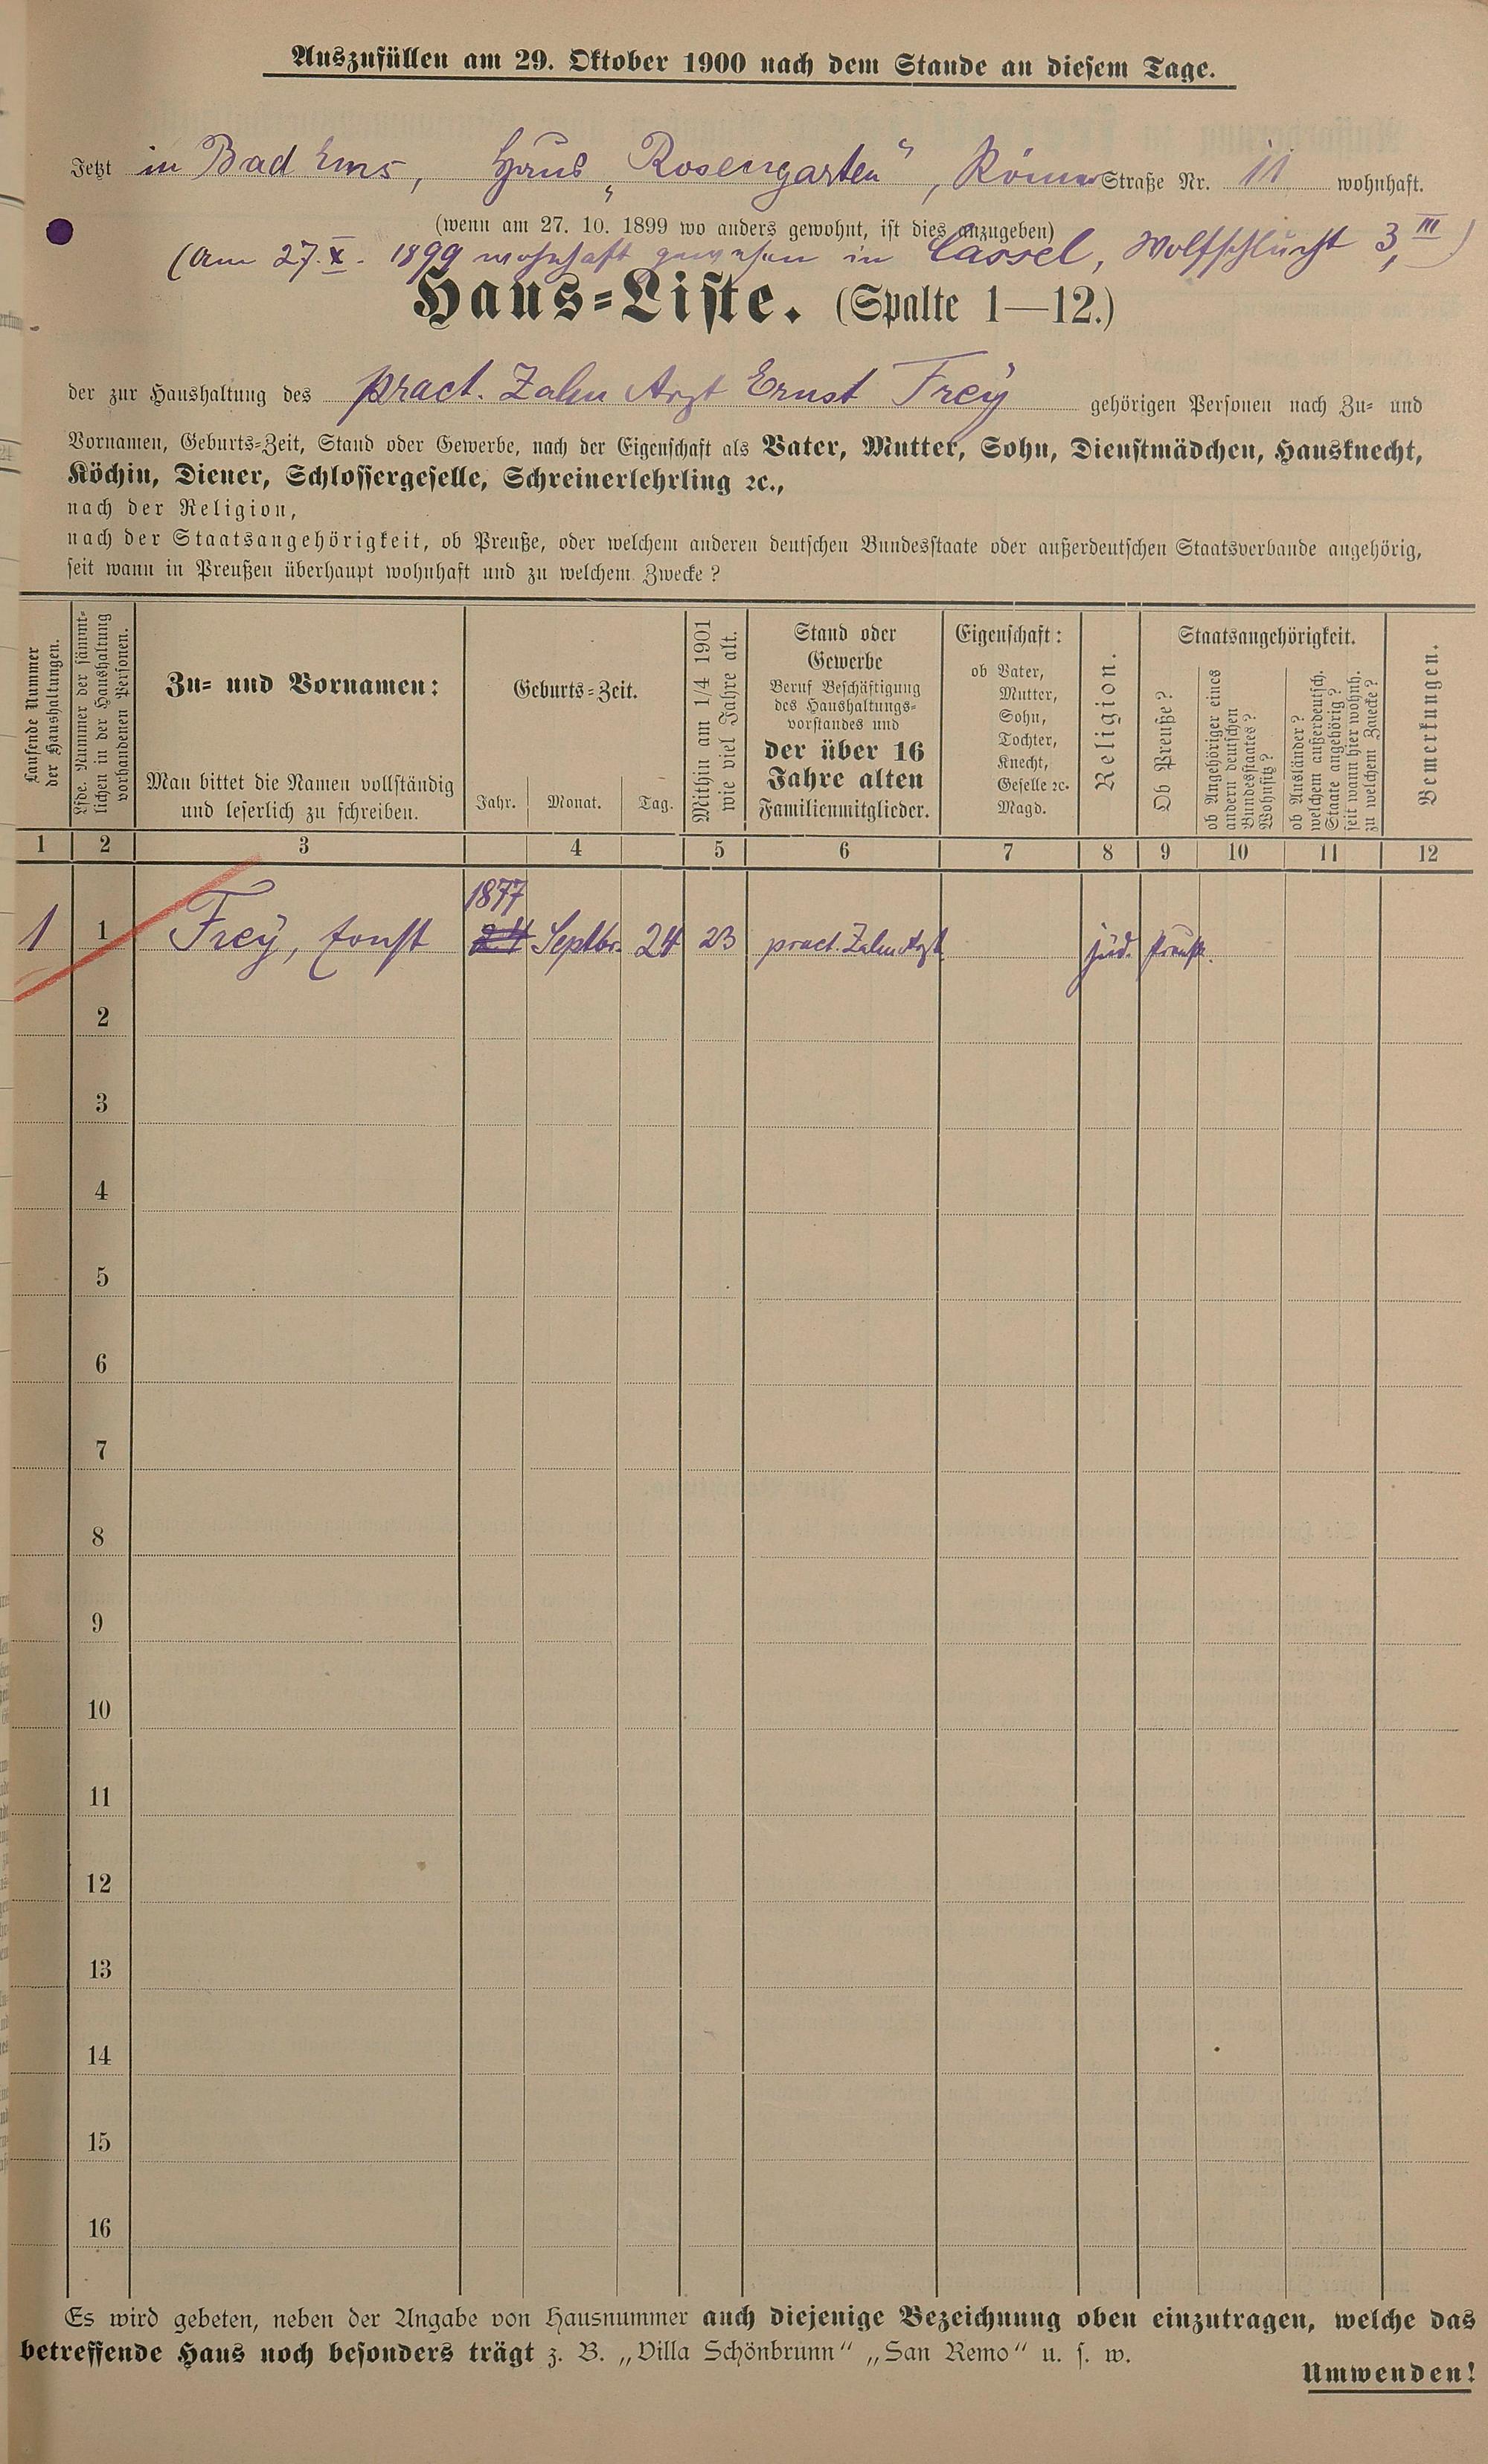 Auszufüllen am 29. Oktober 1900 nach dem Stande an diesem Tage.
Jetzt in Bad Ems, Haus „Rosengarten“, Römer Straße Nr. 11 wohnhaft.
(wenn am 27. 10. 1899 wo anders gewohnt, ist dies anzugeben)
(Am 27. X. 1899 wohnhaft gewesen in Cassel, Wolfschlucht 3, III)
Haus-Liste. (Spalte 1—12.)
der zur Haushaltung des pract. Zahn Arzt Ernst Frey gehörigen Personen nach Zu- und
Vornamen, Geburts-Zeit, Stand oder Gewerbe, nach der Eigenschaft als Vater, Mutter, Sohn, Dienstmädchen, Hausknecht,
Köchin, Diener, Schlossergeselle, Schreinerlehrling ꝛc.,
nach der Religion,
nach der Staatsangehörigkeit, ob Preuße, oder welchem anderen deutschen Bundesstaate oder außerdeutschen Staatsverbande angehörig,
seit wann in Preußen überhaupt wohnhaft und zu welchem Zwecke?
Laufende Nummer
der Haushaltungen.
Lfde. Nummer der sämmt-
lichen in der Haushaltung
vorhandenen Personen.
Zu- und Vornamen:
Man bittet die Namen vollständig
und leserlich zu schreiben.
Geburts-Zeit.
Jahr. Monat. Tag.
Mithin am 1/4 1901
wie viel Jahre alt.
Stand oder
Gewerbe
Beruf Beschäftigung
des Haushaltungs-
vorstandes und
der über 16
Jahre alten
Familienmitglieder.
Eigenschaft:
ob Vater,
Mutter,
Sohn,
Tochter,
Knecht,
Geselle ꝛc.
Magd.
Religion.
Staatsangehörigkeit.
Ob Preuße?
ob Angehöriger eines
andern deutschen
Bundesstaates?
Wohnsitz?
ob Ausländer?
welchem außerdeutsch.
Staate angehörig?
seit wann hier wohnh.
zu welchem Zwecke?
Bemerkungen.
1 2 3 4 5 6 7 8 9 10 11 12
1877
1 1 Frey, Ernst 24 Septbr. 24 23 pract. Zahn Arzt jüd. Preuße.
2
3
4
5
6
7
8
9
10
11
12
13
14
15
16
Es wird gebeten, neben der Angabe von Hausnummer auch diejenige Bezeichnung oben einzutragen, welche das
betreffende Haus noch besonders trägt z. B. „Villa Schönbrunn“ „San Remo“ u. s. w.
Umwenden!